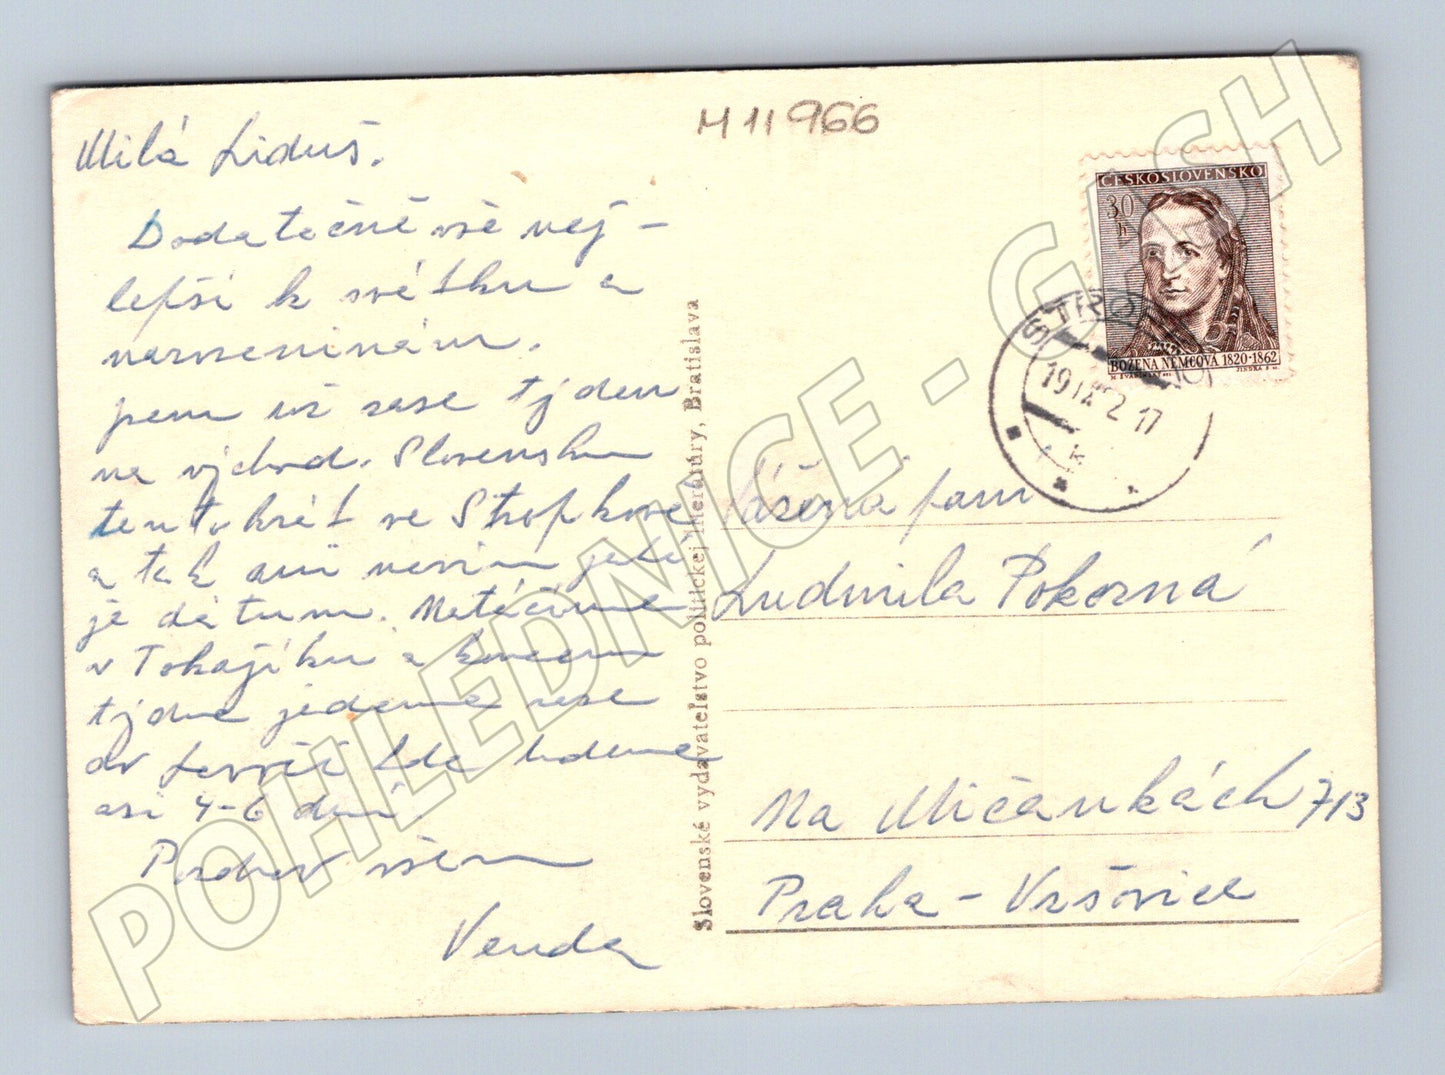 M 11 966
Milá Liduš.
Dodatečně vše nej-
lepší k svátku a
narozeninám.
jsem už zase týden
na východ. Slovensku
tentokrát ve Stropkově
a tak ani nevím jaké
je datum. Natáčíme
v Tokajíku a koncem
týdne jedeme zase
do kde budeme
asi 4-6 dní
Pozdrav všem
Venda
Slovenské vydavateľstvo politickej literatúry, Bratislava
ČESKOSLOVENSKO
30
h
BOŽENA NĚMCOVÁ 1820-1862
M. ŠVABINSKÝ DEL. JINDRA SC.
STROPKOV
19 IX 62 17
k
Vážená paní
Ludmila Pokorná
Na Mičánkách 713
Praha - Vršovice
POHLEDNICE - GASH